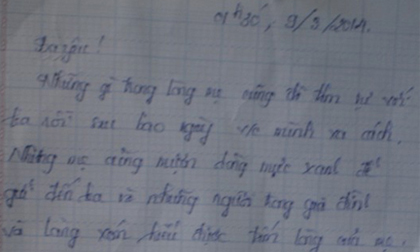 01h30', 9/3/2014.
Ba yêu!
Những gì trong lòng mẹ cũng đã tâm sự với
ba rồi sau bao ngày vc mình xa cách.
Nhưng mẹ cũng mượn dòng mực xanh để
gửi đến ba và những người trong gia đình
và làng xóm hiểu được tấm lòng của mẹ